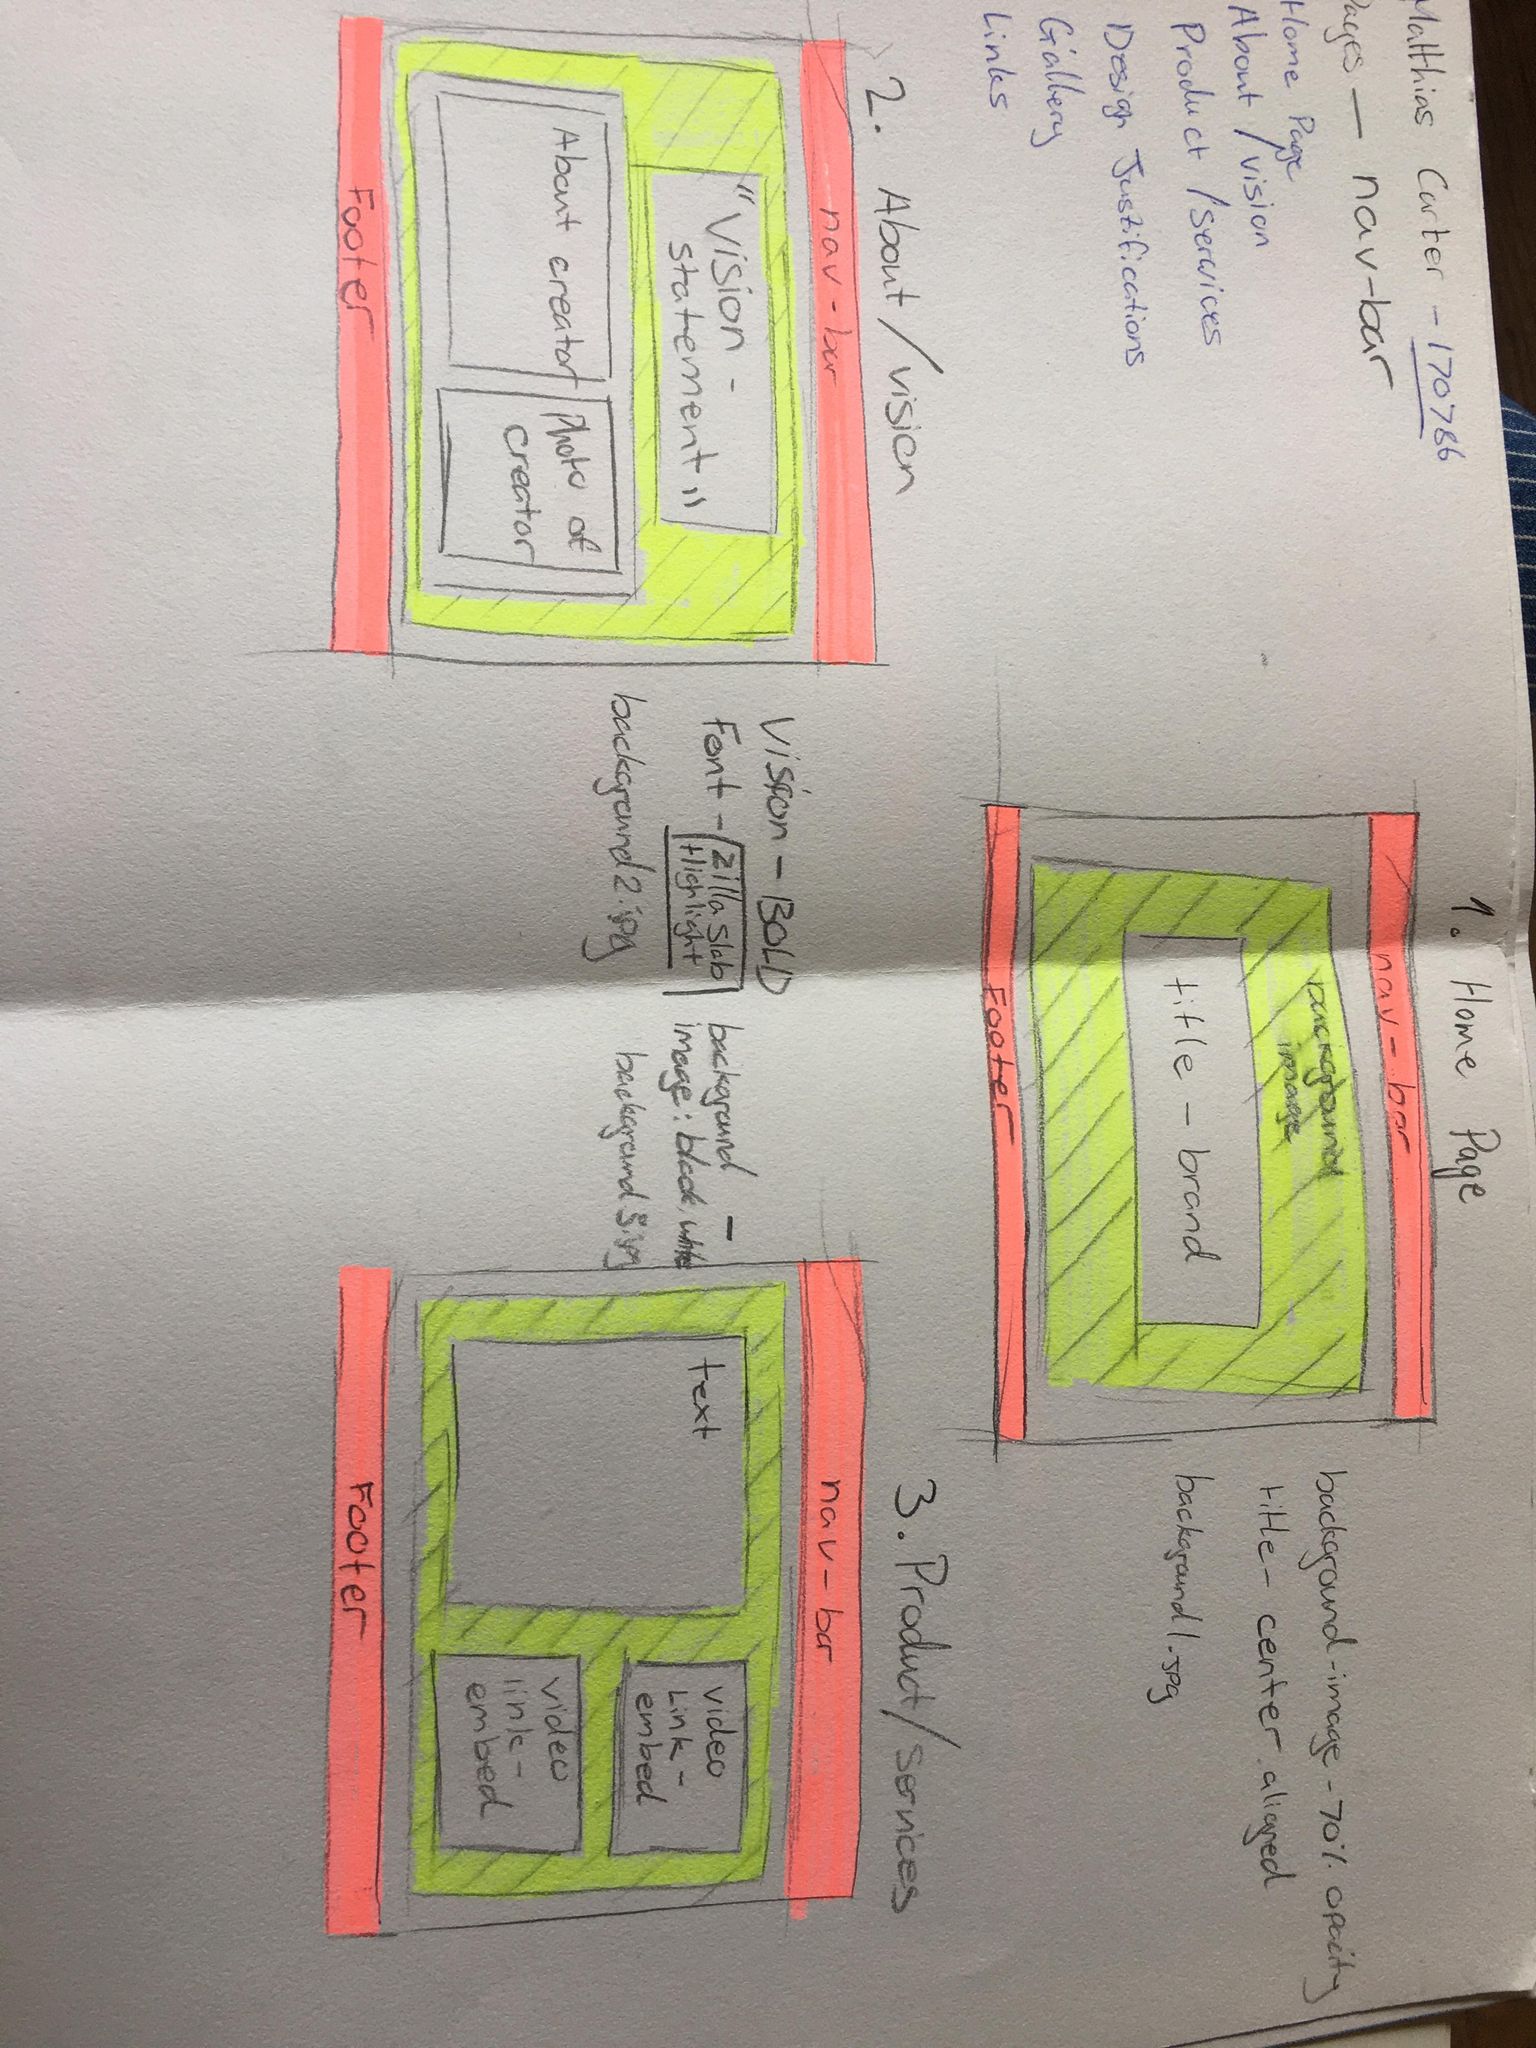 Matthias Carter - 170786
Pages — nav-bar
Home Page
About / vision
Product / services
Design Justifications
Gallery
Links
1. Home Page
nav - bar
background
image
title - brand
Footer
background-image - 70% opacity
title - center aligned
background1.jpg
2. About / vision
nav - bar
"Vision -
statement"
About creator
Photo of
creator
Footer
Vision - BOLD
Font - Zilla Slab
Highlight
background2.jpg
3. Product / services
background -
image: black, white
background3.jpg
nav - bar
text
video
Link -
embed
video
link -
embed
Footer